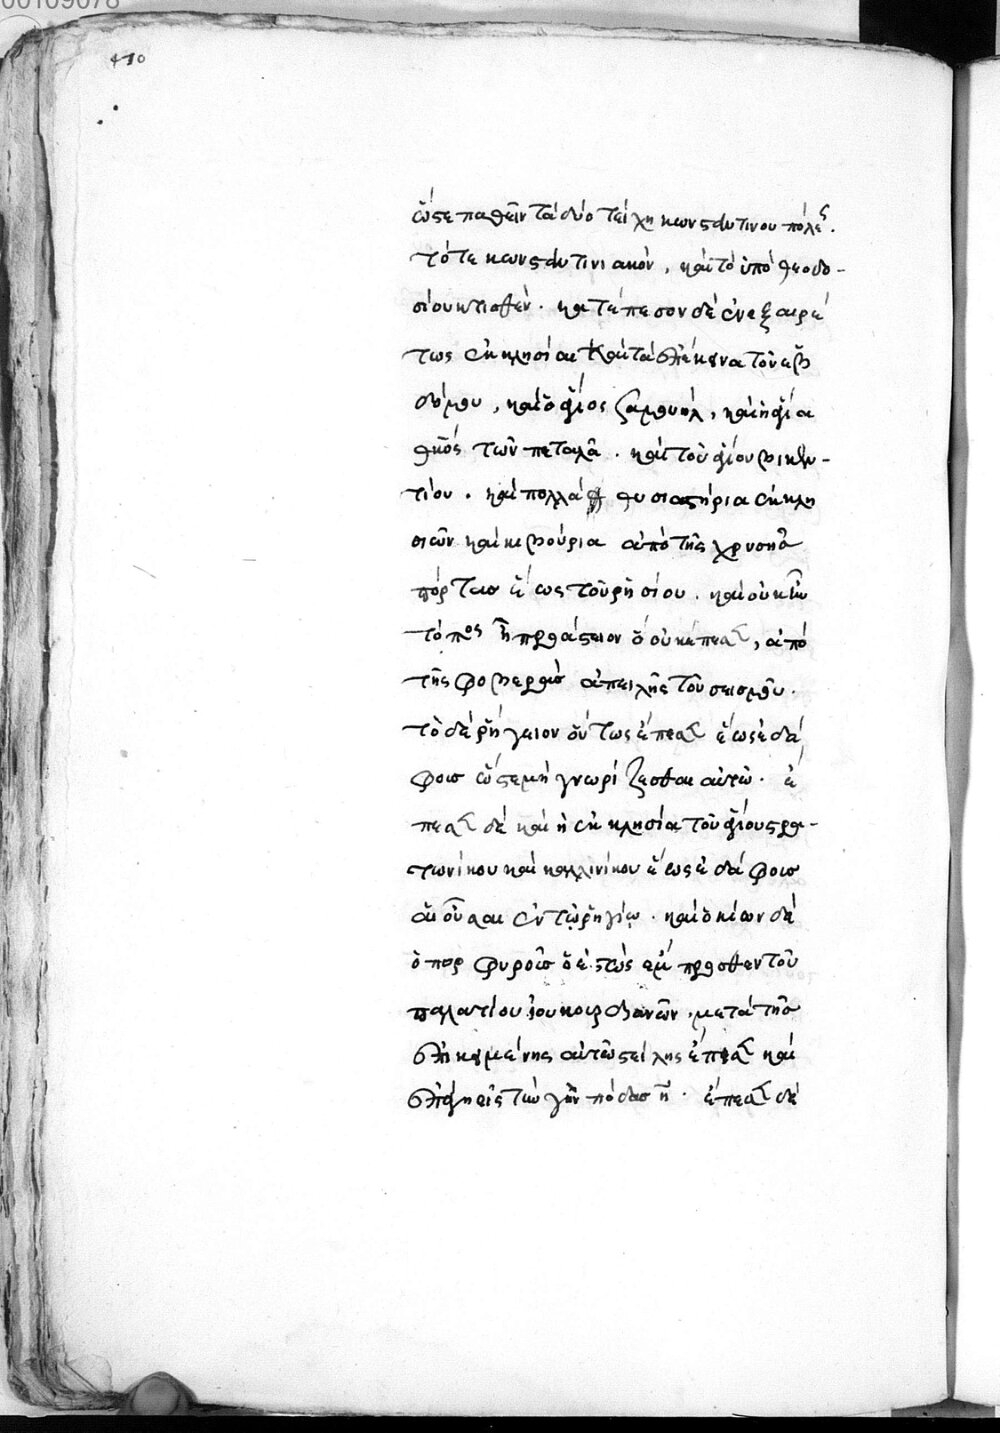 00109078
410
ὥστε παθεῖν τὰ δύο τείχη κωνσταντινουπόλεως.
τό τε κωνσταντινιακὸν, καὶ τὸ ὑπὸ θεοδο-
σίου κτισθέν. κατέπεσον δὲ ἐνεξαιρέ
τως ἐκκλησίαι καὶ τὰ ἐπέκεινα τοῦ ἑβ
δόμου, καὶ ὁ ἅγιος σαμουὴλ, καὶ ἡ ἁγία
θκος τῶν πεταλᾶ. καὶ τοῦ ἁγίου βικεν-
τίου. καὶ πολλὰ θυσιαστήρια ἐκκλη
σιῶν καὶ κιβούρια ἀπὸ τῆς χρυσῆς
πόρτας ἕως τοῦ ῥησίου. καὶ οὐκ ἦν
τόπος ἢ προάστειον ὃ οὐκ ἔπεσεν, ἀπὸ
τῆς φοβερᾶς ἀπειλῆς τοῦ σεισμοῦ.
τὸ δὲ ῥήγειον οὕτως ἔπεσεν ἕως ἐδά
φους ὥστε μὴ γνωρίζεσθαι αὐτῶ. ἔ
πεσεν δὲ καὶ ἡ ἐκκλησία τοῦ ἁγίου στρα-
τωνίκου καὶ καλλινίκου ἕως ἐδάφους
αἱ οὖσαι ἐν τῷ ῥηγίῳ. καὶ ὁ κίων δὲ
ὁ πορφυροῦς ὁ ἑστὼς ἔμπροσθεν τοῦ
παλατίου ἰουκουνδιανῶν, μετὰ τῆς
ἐπικειμένης αὐτῶ στήλης ἔπεσεν καὶ
ἐπάγη εἰς τὴν γῆν πόδας η. ἔπεσεν δὲ